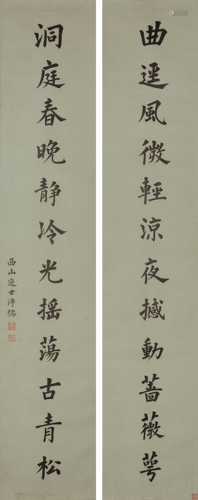 曲逕風微輕涼夜撼動薔薇萼
洞庭春晚静冷光摇蕩古青松
西山逸士溥儒